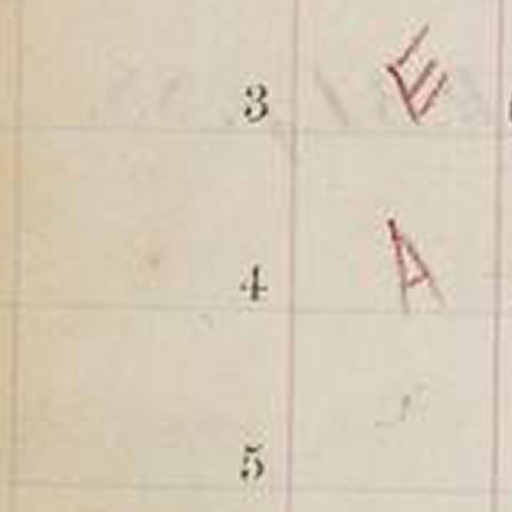 3 E
4 A
5